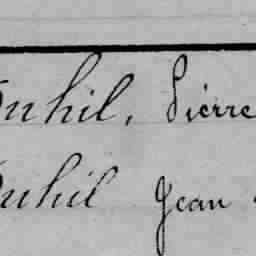 Duhil, Pierre
Duhil Jean